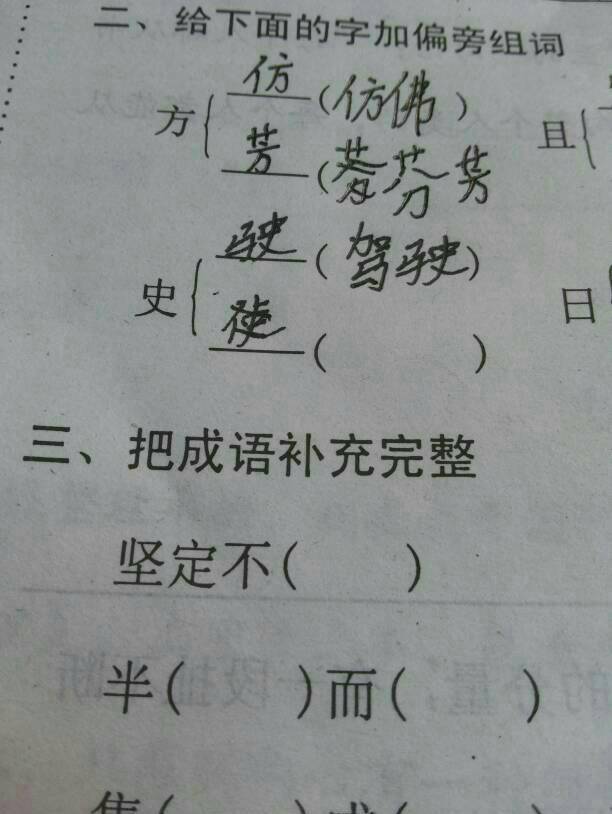 二、给下面的字加偏旁组词
方{仿(仿佛) 且{
芳(芬芳
史{驶(驾驶) 日
使( )
三、把成语补充完整
坚定不( )
半( )而( )